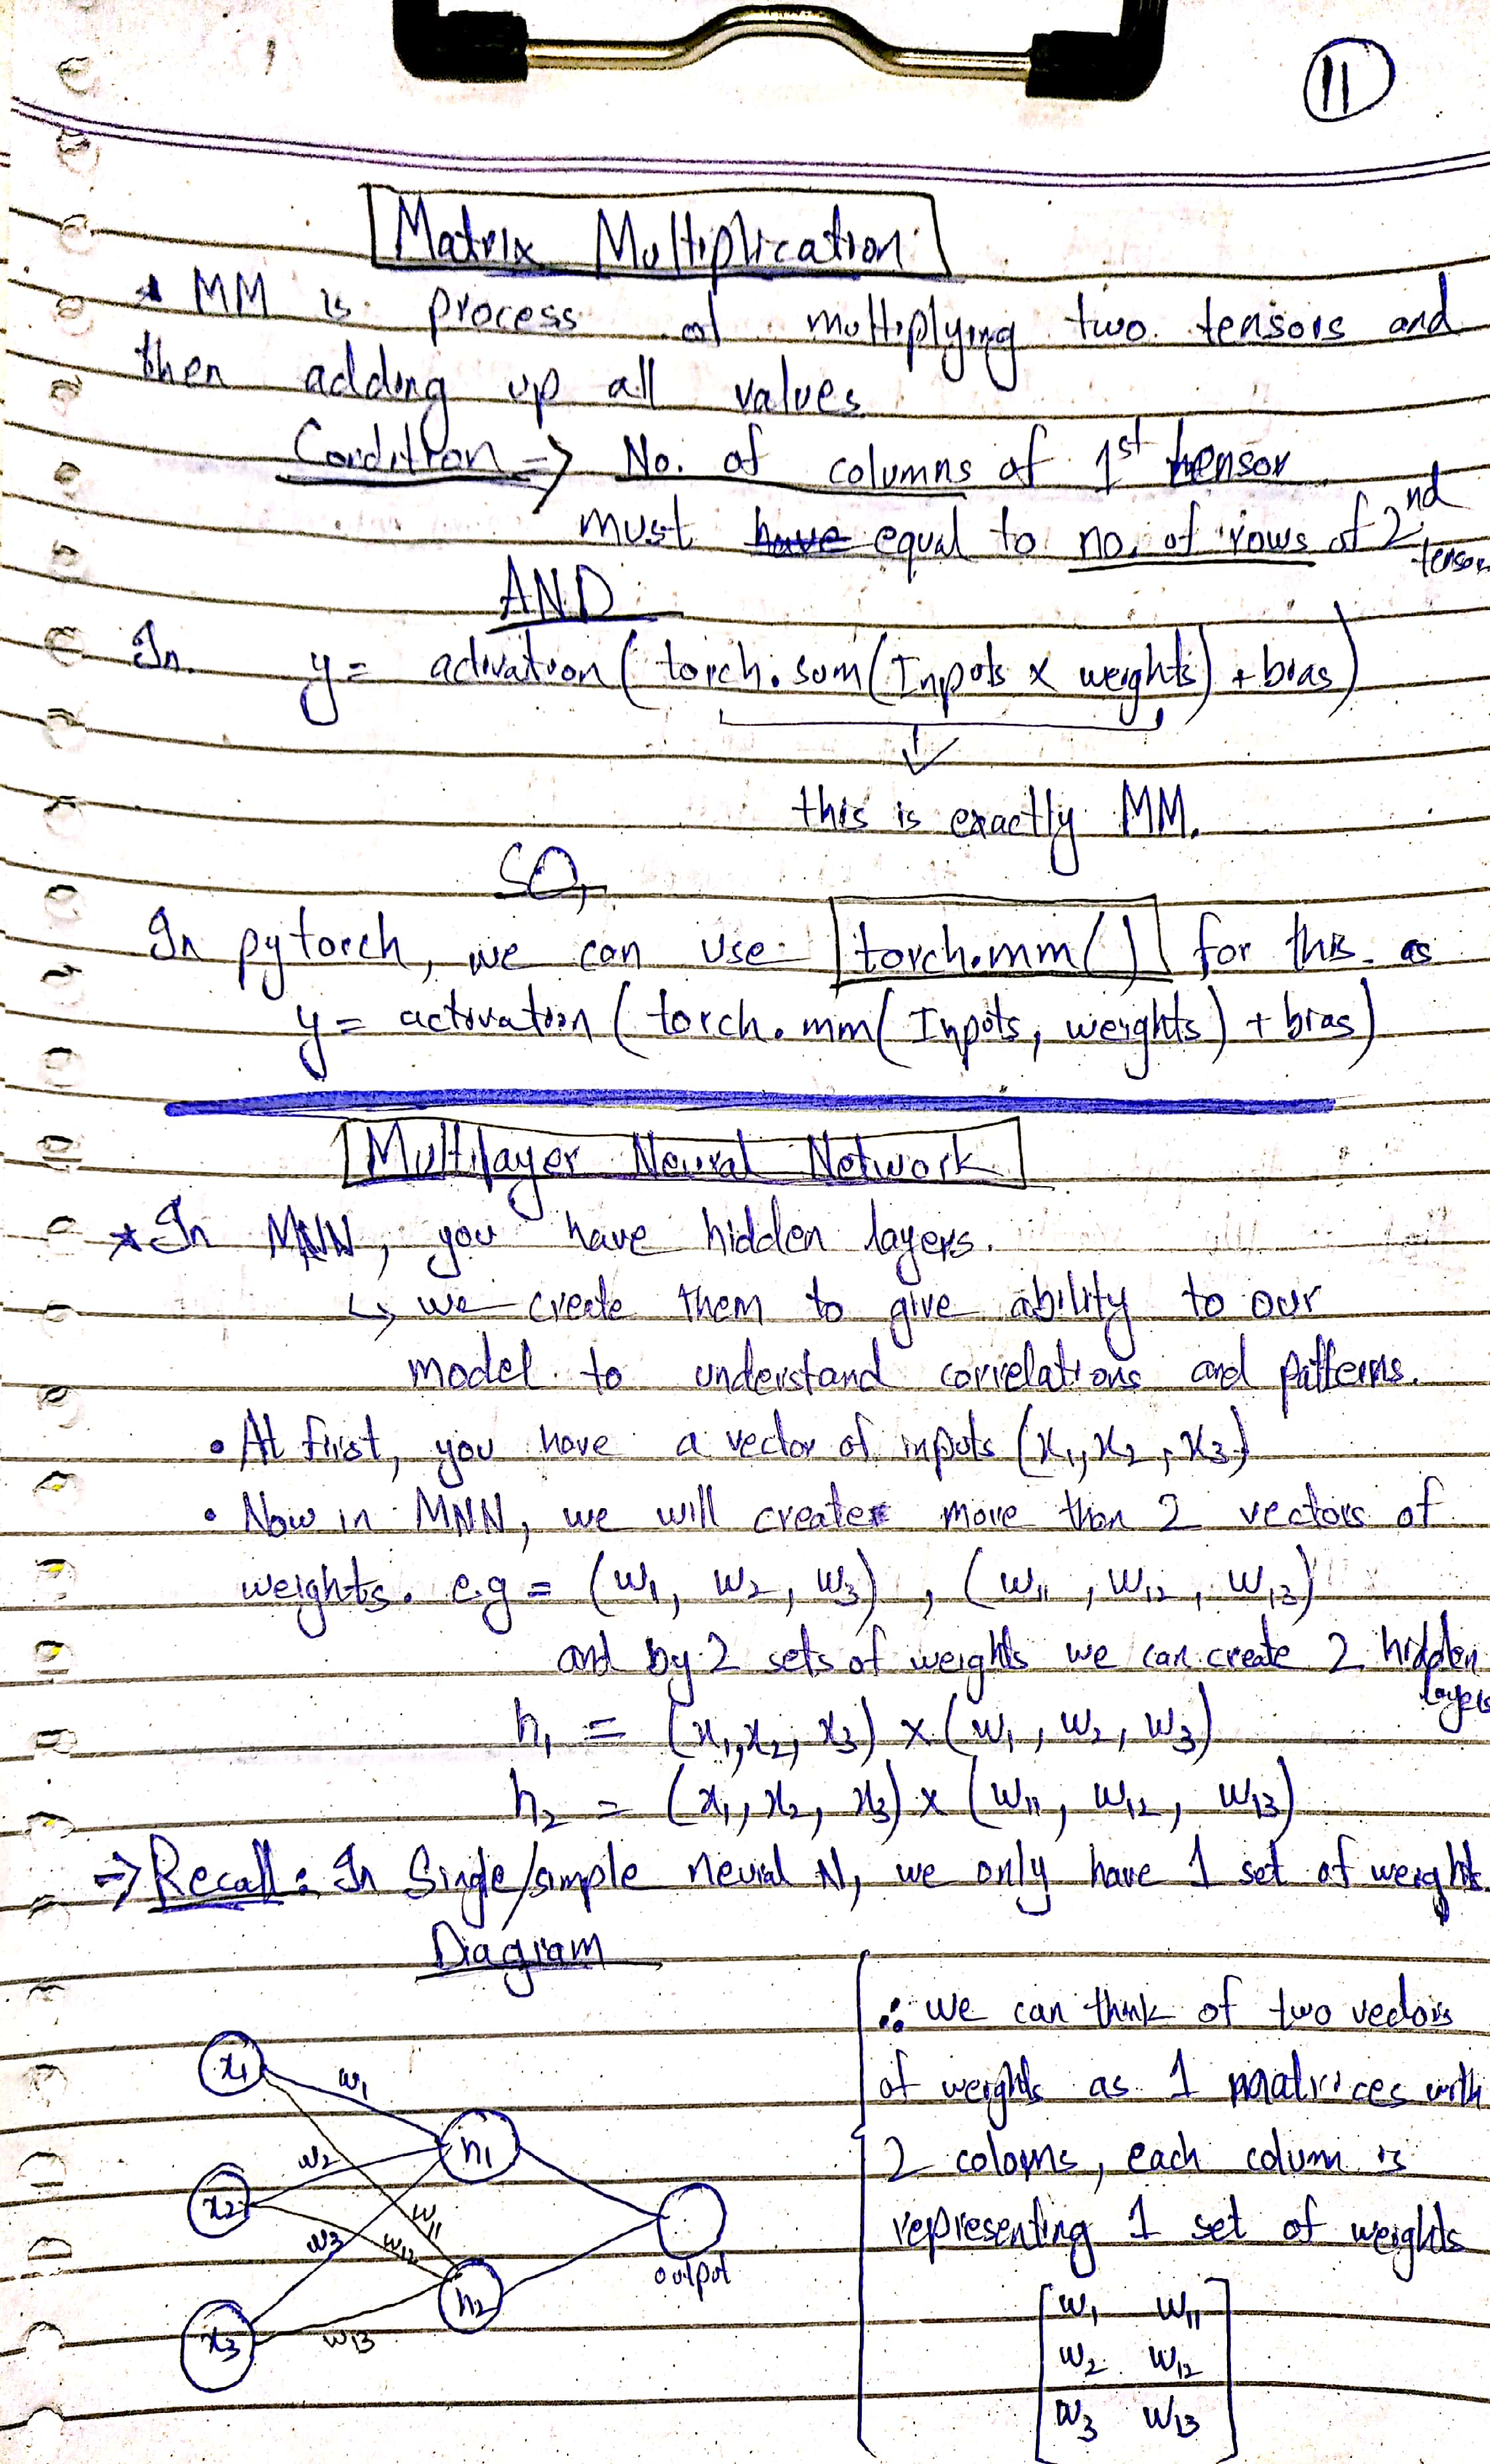 11
Matrix Multiplication
* MM is process of multiplying two tensors and
then adding up all values
Condition => No. of columns of 1st tensor
must have equal to no. of rows of 2nd tensor
AND
In y = activation ( torch.sum(Inputs x weights) + bias)
this is exactly MM.
SO,
In pytorch, we can use torch.mm() for this as
y = activation ( torch.mm( Inputs, weights) + bias)
Multilayer Neural Network
* In MNN, you have hidden layers.
↳ we create them to give ability to our
model to understand correlations and patterns.
• At first, you have a vector of inputs (x1, x2, x3)
• Now in MNN, we will create more than 2 vectors of
weights. e.g = (w1, w2, w3) , (w11, w12, w13)
and by 2 sets of weights we can create 2 hidden layers
h1 = (x1, x2, x3) x (w1, w2, w3)
h2 = (x1, x2, x3) x (w11, w12, w13)
=> Recall: In Single/simple neural N, we only have 1 set of weights.
Diagram
x1
w1
h1
w2
x2
w11
w3
w12
output
h2
x3
w13
∴ we can think of two vectors
of weights as 1 matrices with
2 coloms, each colum is
representing 1 set of weights
w1 w11
w2 w12
w3 w13